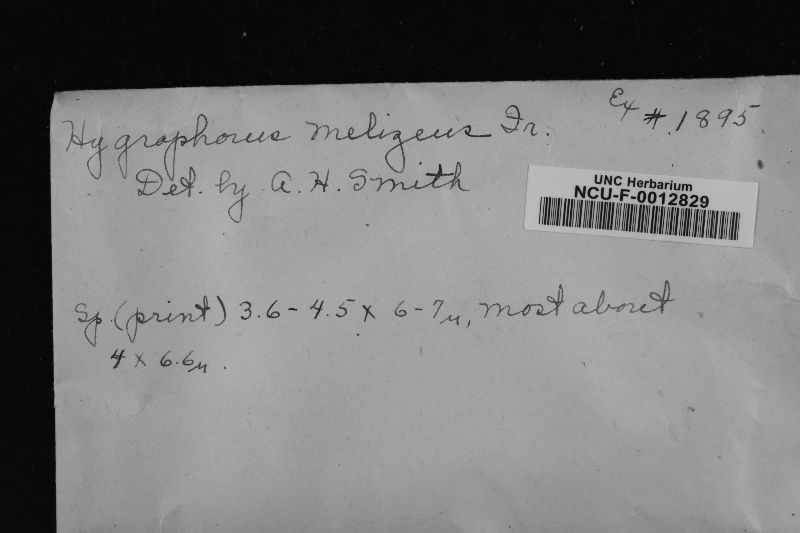 Hygrophorus melizeus Fr.
Ex # 1895.
Det. by A. H. Smith
UNC Herbarium
NCU-F-0012829
Sp. (print) 3.6 - 4.5 x 6 - 7µ, most about
4 x 6.6µ.